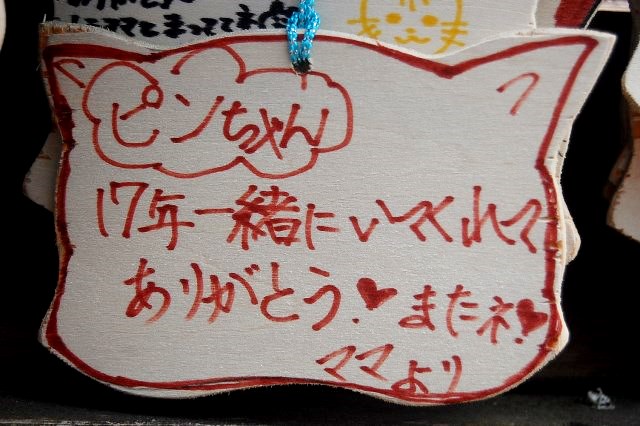 ピンちゃん
17年一緒にいてくれて
ありがとう!♥またネ!♥
ママより